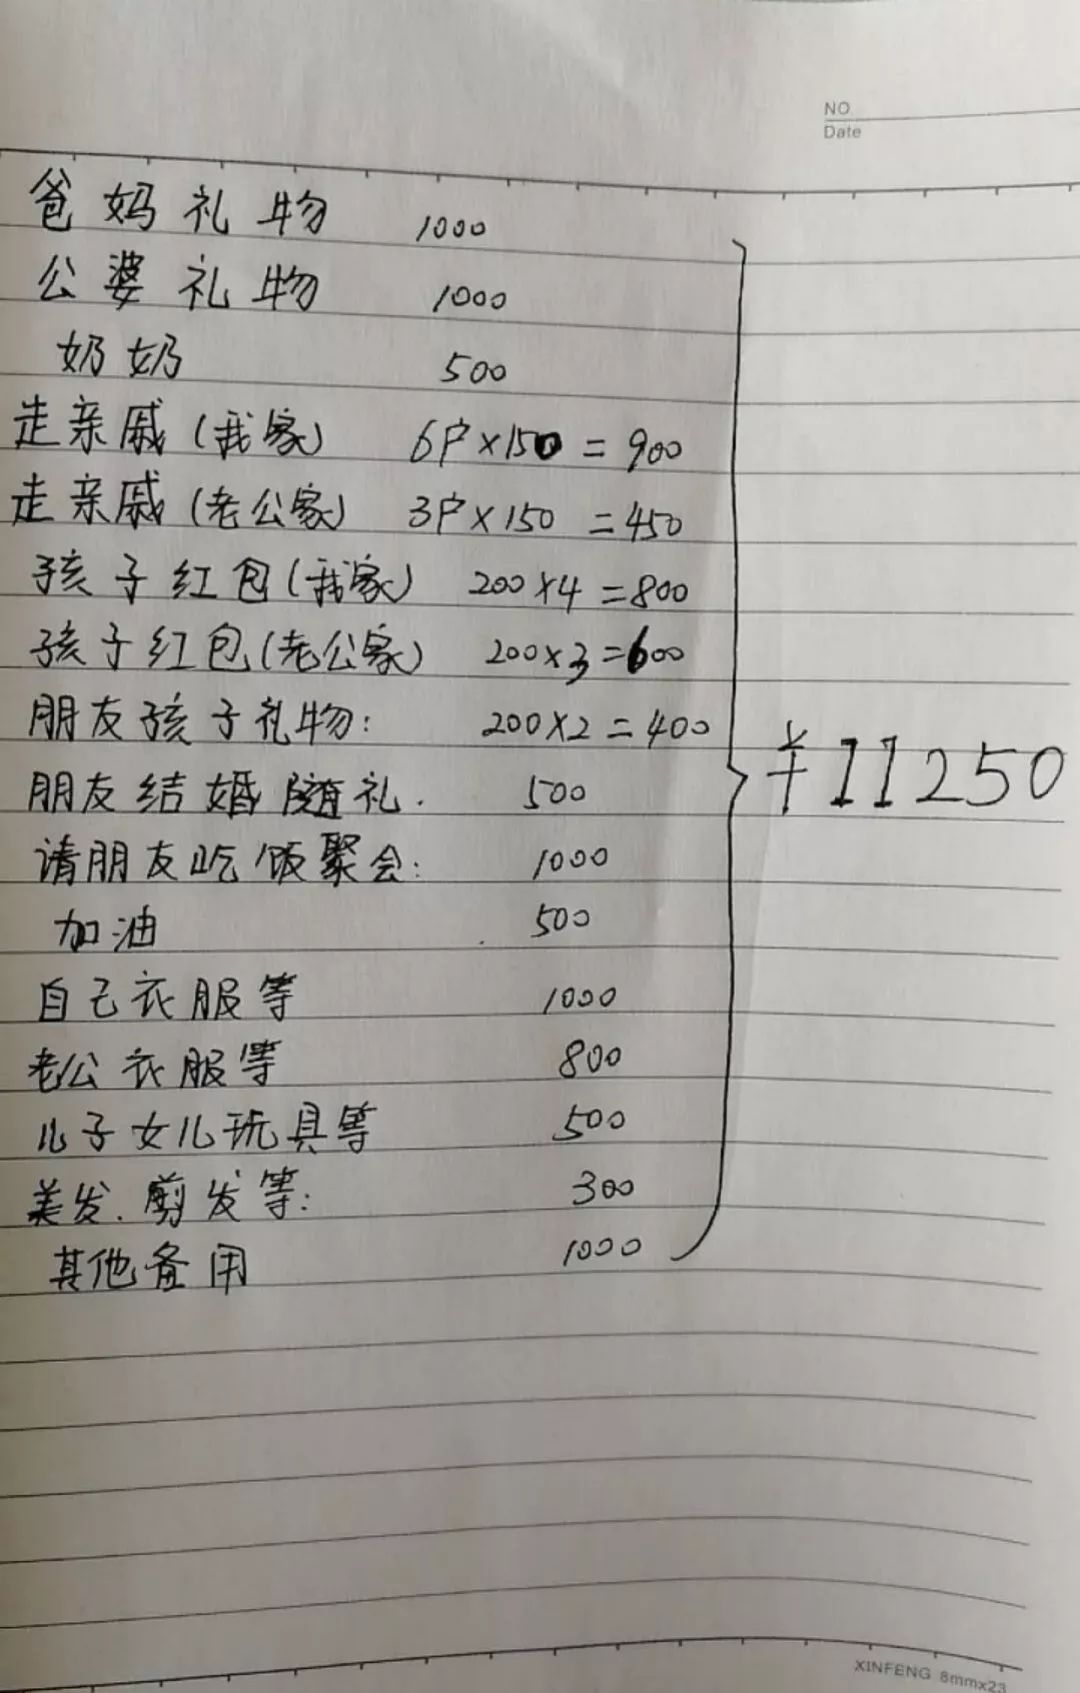 NO
Date
爸妈礼物 1000
公婆礼物 1000
奶奶 500
走亲戚(我家) 6户×150=900
走亲戚(老公家) 3户×150=450
孩子红包(我家) 200×4=800
孩子红包(老公家) 200×3=600
朋友孩子礼物: 200×2=400
¥11250
朋友结婚随礼. 500
请朋友吃饭聚会: 1000
加油 500
自己衣服等 1000
老公衣服等 800
儿子女儿玩具等 500
美发.剪发等: 300
其他备用 1000
XINFENG 8mmx23